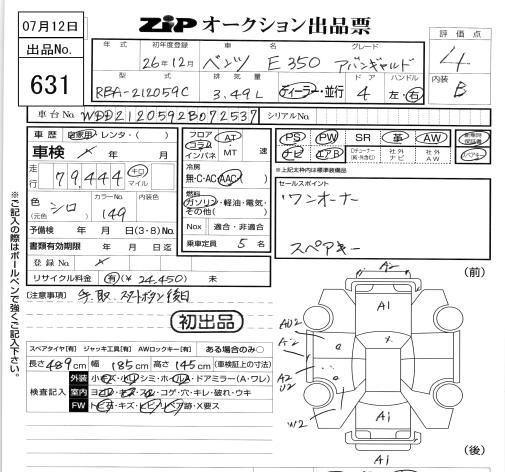 07月12日
出品No.
631
ZIP オークション出品票
年式 初年度登録 車名 グレード
26年12月 ベンツ E350 アバンギャルド
型式 排気量 ドア ハンドル
RBA-212059C 3.49L ディーラー・並行 4 左・右
評価点
4
内装
B
車台No. WDD2120592B072537 シリアルNo.
車歴 自家用・レンタ・( )
車検 年 月
走行 79,444 キロ マイル
色(元色) シロ カラーNo. 149 内装色
予備検 年 月 日(3・8)No.
書類有効期限 年 月 日迄
登録No.
リサイクル料金 有(¥ 24,450) 未
フロア コラム インパネ AT MT 速
冷房 無・C・AC・AAC
燃料 ガソリン・軽油・電気・その他( )
Nox 適合・非適合
乗車定員 5 名
PS PW SR 革 AW
ナビ エアB 社外ナビ 社外AW
スペアキー
※上記太枠内は標準装備品
セールスポイント
ワンオーナー
スペアキー
※ご記入の際はボールペンで強くご記入下さい。
(注意事項) 手、取、スタートボタン後日
初出品
スペアタイヤ[有] ジャッキ工具[有] AWロックキー[有] ある場合のみ○
長さ 489cm 幅 185cm 高さ 145cm (車検証上の寸法)
検査記入
外装 ドアミラー(A・ワレ)
室内 コゲ・穴・キレ・破れ・ウキ
FW ト・石・キズ・ヒビ・ヒビリペア跡・X要ス
(前)
A2
A1
AU2
A2
A2
U2
W2
A1
A1
(後)